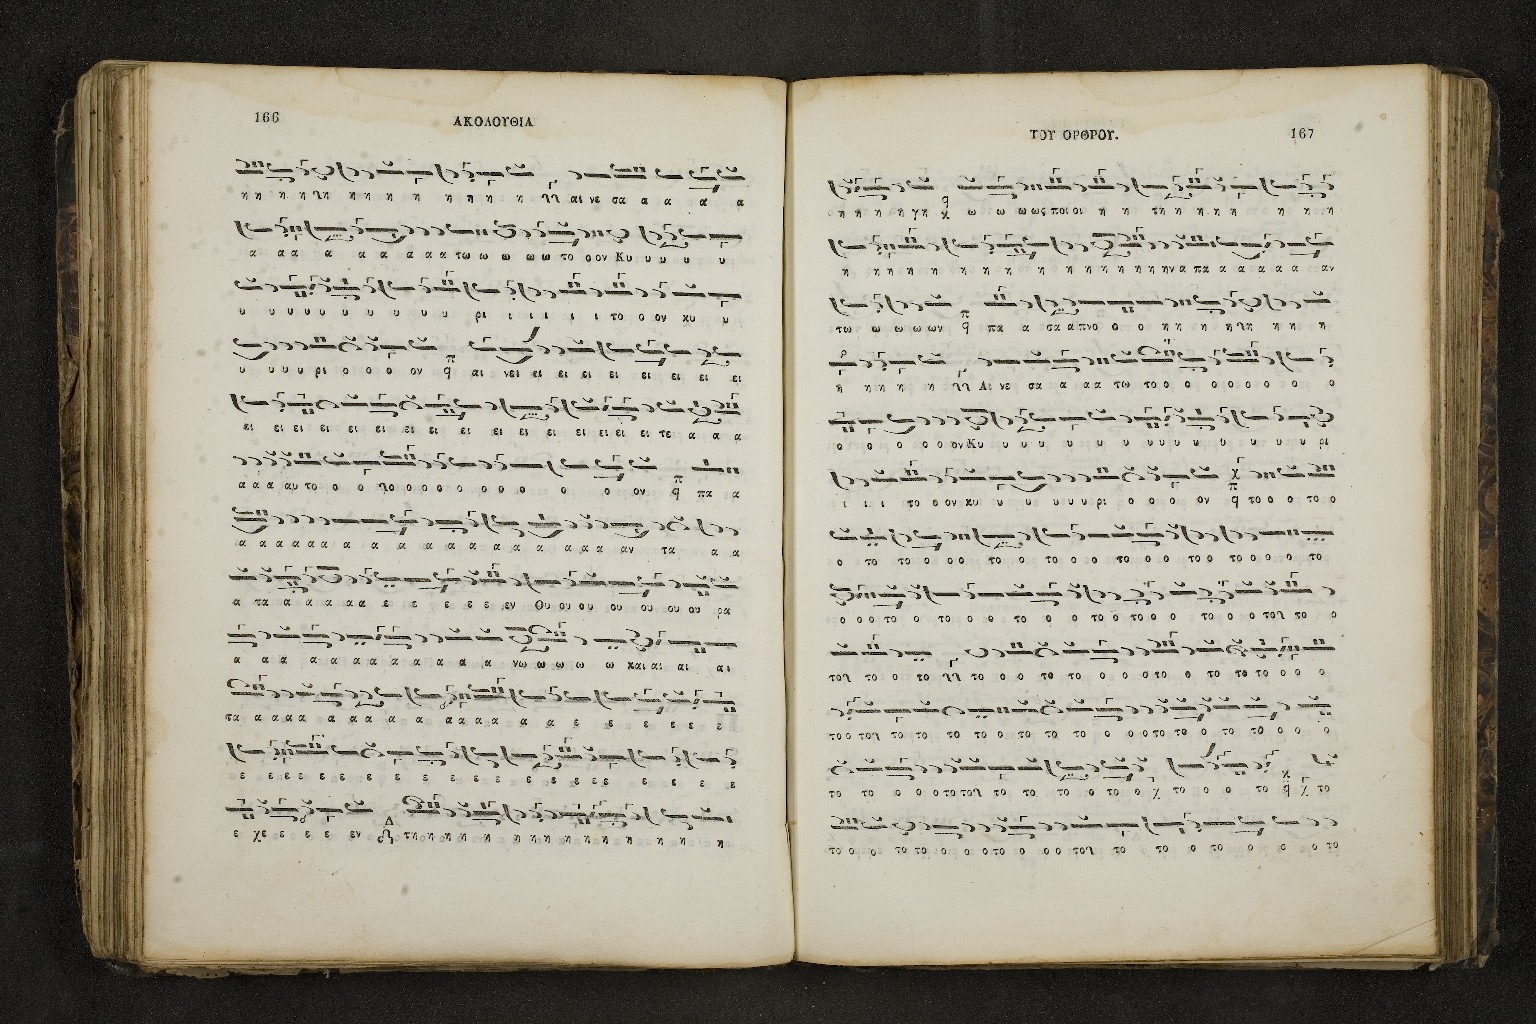 166
ΑΚΟΛΟΥΘΙΑ
η η η λη η η η η η η η η λλ αι νε σα α α α α
α α α α α α α α α τω ω ω ω ω το ο ον Κυ υ υ υ υ
υ υ υ υ υ υ υ υ υ ρι ι ι ι ι ι το ο ον κυ υ
υ υ υ υ ρι ο ο ο ον π q αι νει ει ει ει ει ει ει ει ει
ει ει ει ει ει ει ει ει ει ει ει ει ει ει ει τε α α α
α α α αυ το ο ο λο ο ο ο ο ο ο ο ο ο ον π q πα α
α α α α α α α α α α α α α α α α α α αν τα α α
α τα α α α α α ε ε ε ε ε εν Ου ου ου ου ου ου ου ρα
α α α α α α α α α α α α νω ω ω ω ω και αι αι αι
τα α α α α α α α α α α α α α α α ε ε ε ε ε ε
ε ε ε ε ε ε ε ε ε ε ε ε ε ε ε ε ε ε ε ε
ε χε ε ε ε εν Δ τη η η η η η η η η η η η η η η
ΤΟΥ ΟΡΘΡΟΥ.
167
η η η η γη q χ ω ω ω ως ποι οι η η τη η η η η η η η
η η η η η η η η η η η η η η η η να πα α α α α α αν
τω ω ω ω ων π q πα α σα α πνο ο ο η η η η λη η η η
η η η η η λλ Αι νε σα α α α τω το ο ο ο ο ο ο ο ο ο
ο ο ο ο ο ον Κυ υ υ υ υ υ υ υ υ υ υ υ υ υ ρι
ι ι ι το ο ον κυ υ υ υ υ υ ρι ο ο ο ον π q το ο ο το ο
ο το το ο ο ο το ο το ο ο το ο ο το ο το ο ο ο το
ο ο ο το ο το ο ο το ο ο το ο το ο ο το ο ο το λ το ο
το λ το ο το λλ το ο ο το το ο ο ο το ο το το το ο ο ο
το ο το λ το το το ο το το το ο ο ο το το ο το το ο ο ο
το το ο ο ο το το λ το το το ο το ο χ το ο ο το q χ το
το ο ο το το ο ο ο το ο ο ο το λ το το ο το ο ο ο το